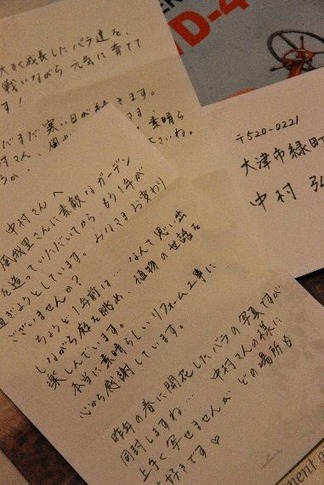 大きく成長したバラ達を、
戦いながら元気に育てて
す!
だまだ寒い日が続きます。
村さん、風
中村さんへ
風我里さんに素敵なガーデン
を造っていただいてから、もう1年が
過ぎようとしています。お変わり
ございませんか?
ちょうど1年前は… なんて思い出
しながら庭を眺め、植物の世話を
楽しんでいます。
本当に素晴らしいリフォーム工事に
心から感謝しています。
昨年の春に開花したバラの写真ですが
同封しますね… 中村さんの様に
上手く写せませんが、どの場所も
好きです♡
〒520-0221
大津市緑町
中村 弘
ND-4
ment a